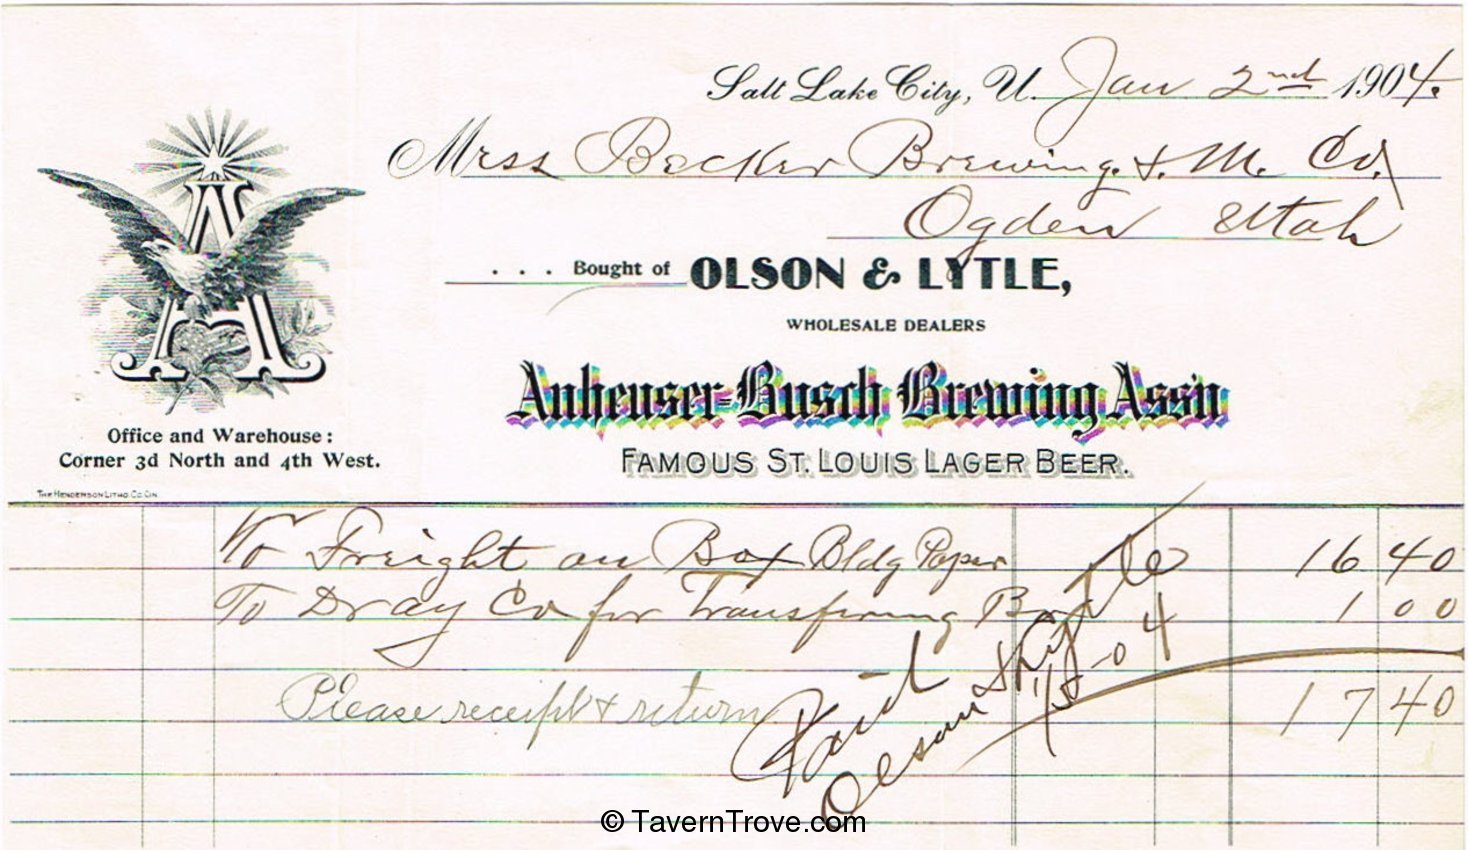 Salt Lake City, U. Jan 2nd 1904.
Mess Becker Brewing. & M. Co.
Ogden Utah
. . . Bought of OLSON & LYTLE,
WHOLESALE DEALERS
Anheuser-Busch Brewing Ass'n
FAMOUS ST. LOUIS LAGER BEER.
A
Office and Warehouse:
Corner 3d North and 4th West.
THE HENDERSON LITHO. CO. CIN.
To Freight on Box Bldg Paper 16 40
To Dray Co for Transfiring Box 1 00
17 40
Please receipt & return
Paid
Olson & Lytle
1/5-04
© TavernTrove.com